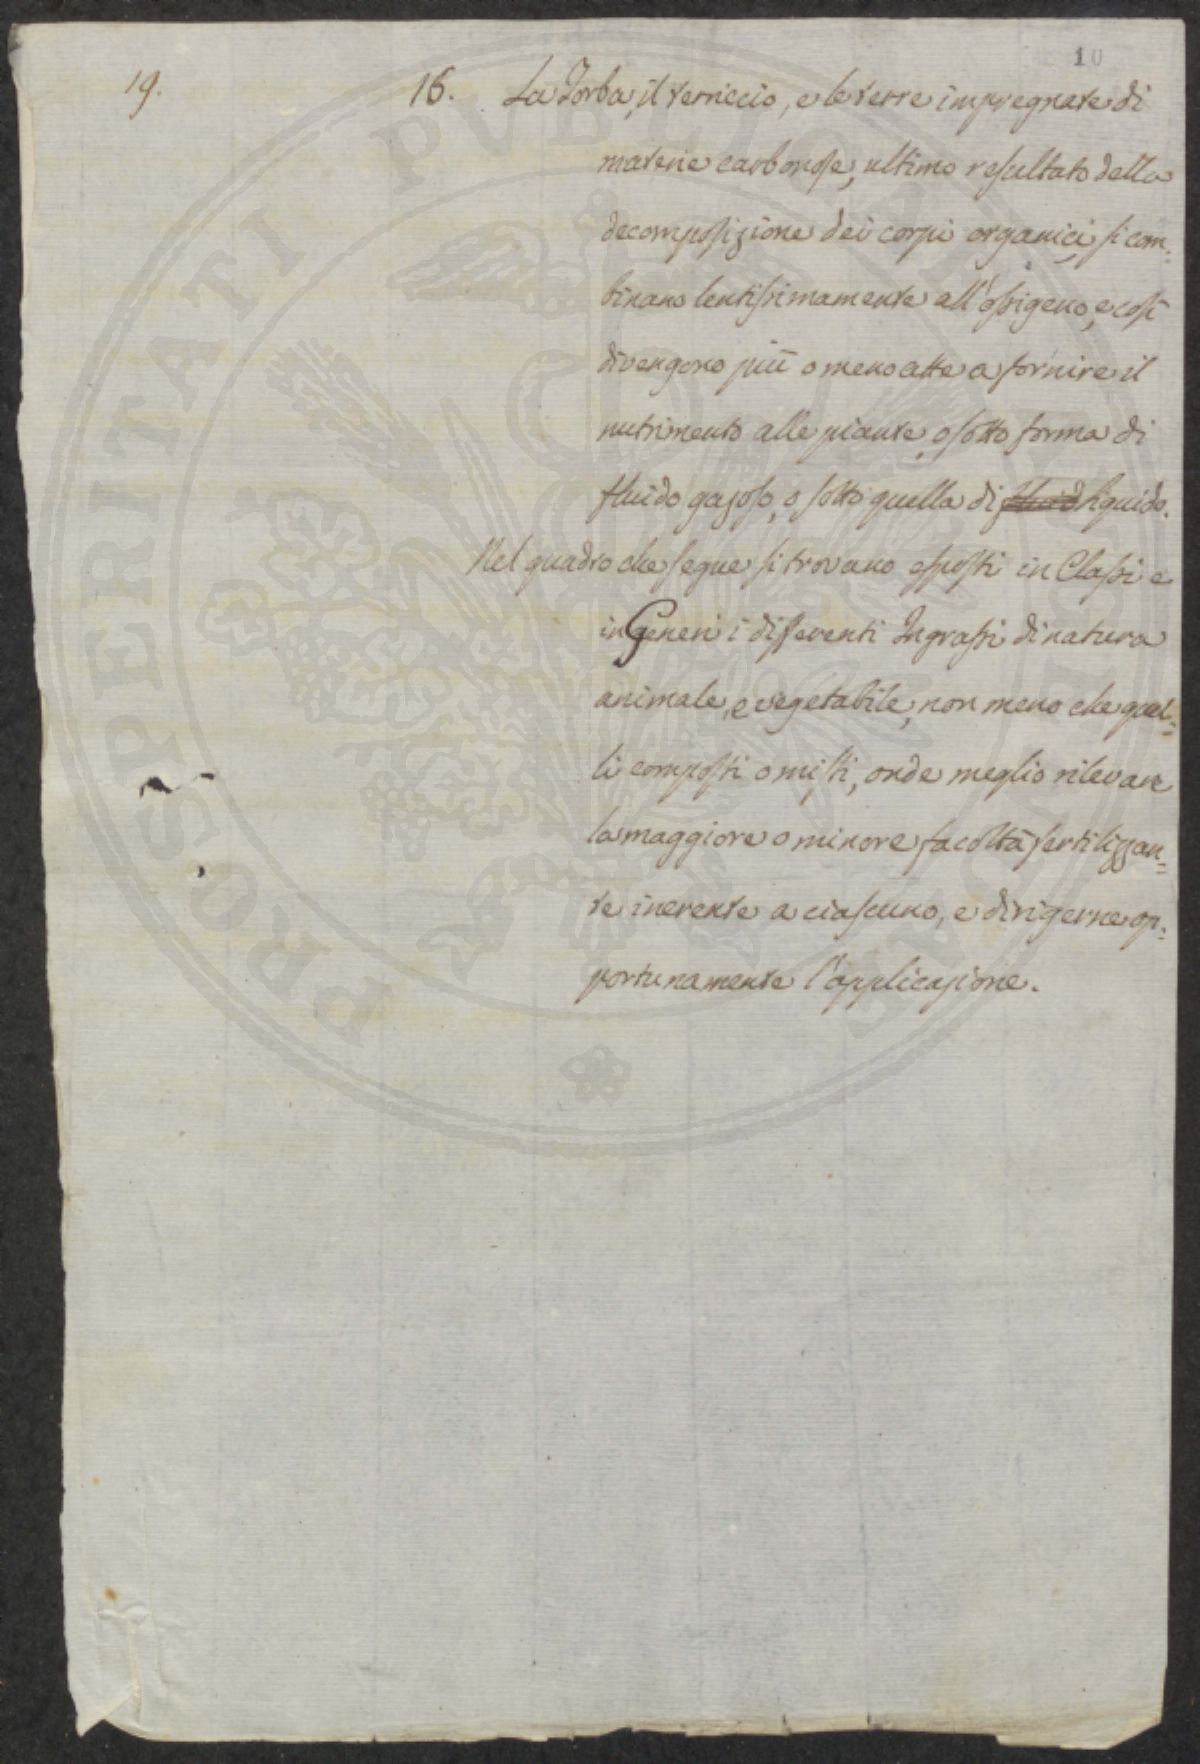 10
19.
16. La Torba, il terriccio, e le terre impregnate di
materie carbonose, ultimo resultato della
decomposizione dei corpi organici, si com=
binano lentissimamente all'ossigeno, e così
divengono più o meno atte a fornire il
nutrimento alle piante, o sotto forma di
fluido gazoso, o sotto quella di fluido liquido.
Nel quadro che segue si trovano esposti in Classi e
in Generi i differenti Ingrassi di natura
animale, e vegetabile, non meno che quel=
li composti o misti, onde meglio rilevare
la maggiore o minore facoltà fertilizzan=
te inerente a ciascuno, e dirigerne op=
portunamente l'applicazione.
PROSPERITATI PUBLICAE